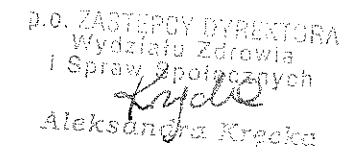 p.o. ZASTĘPCY DYREKTORA
Wydziału Zdrowia
i Spraw Społecznych
Aleksandra Kręcka